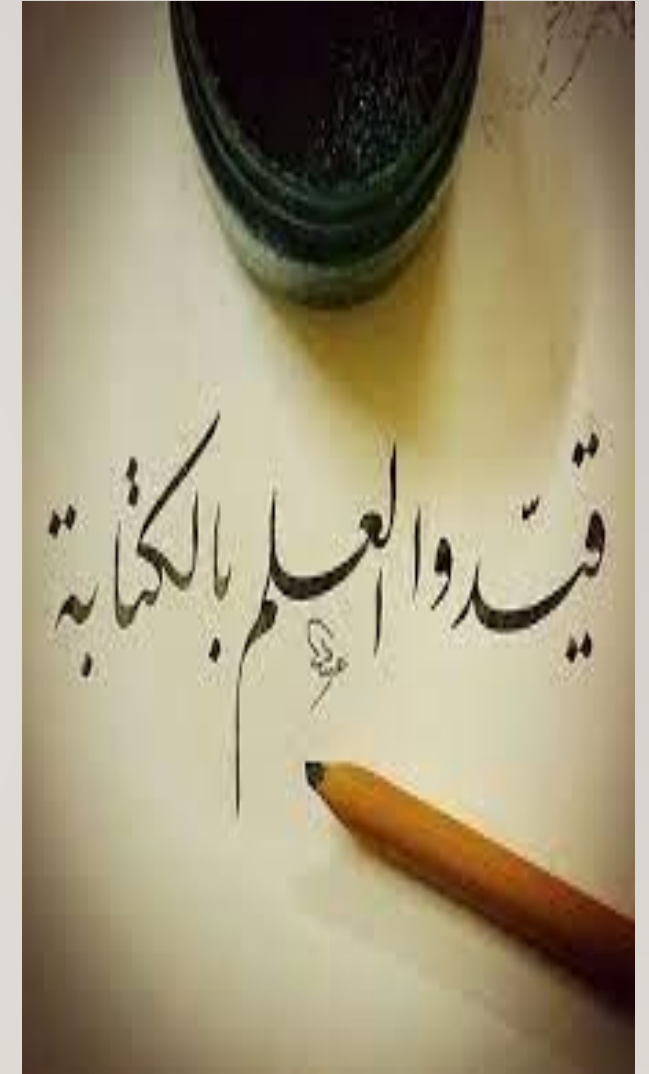 قيّدوا العلم بالكتابة